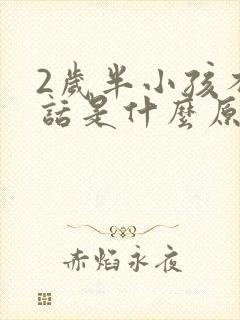 2歲半小孩
話是什麼原
赤焰永夜